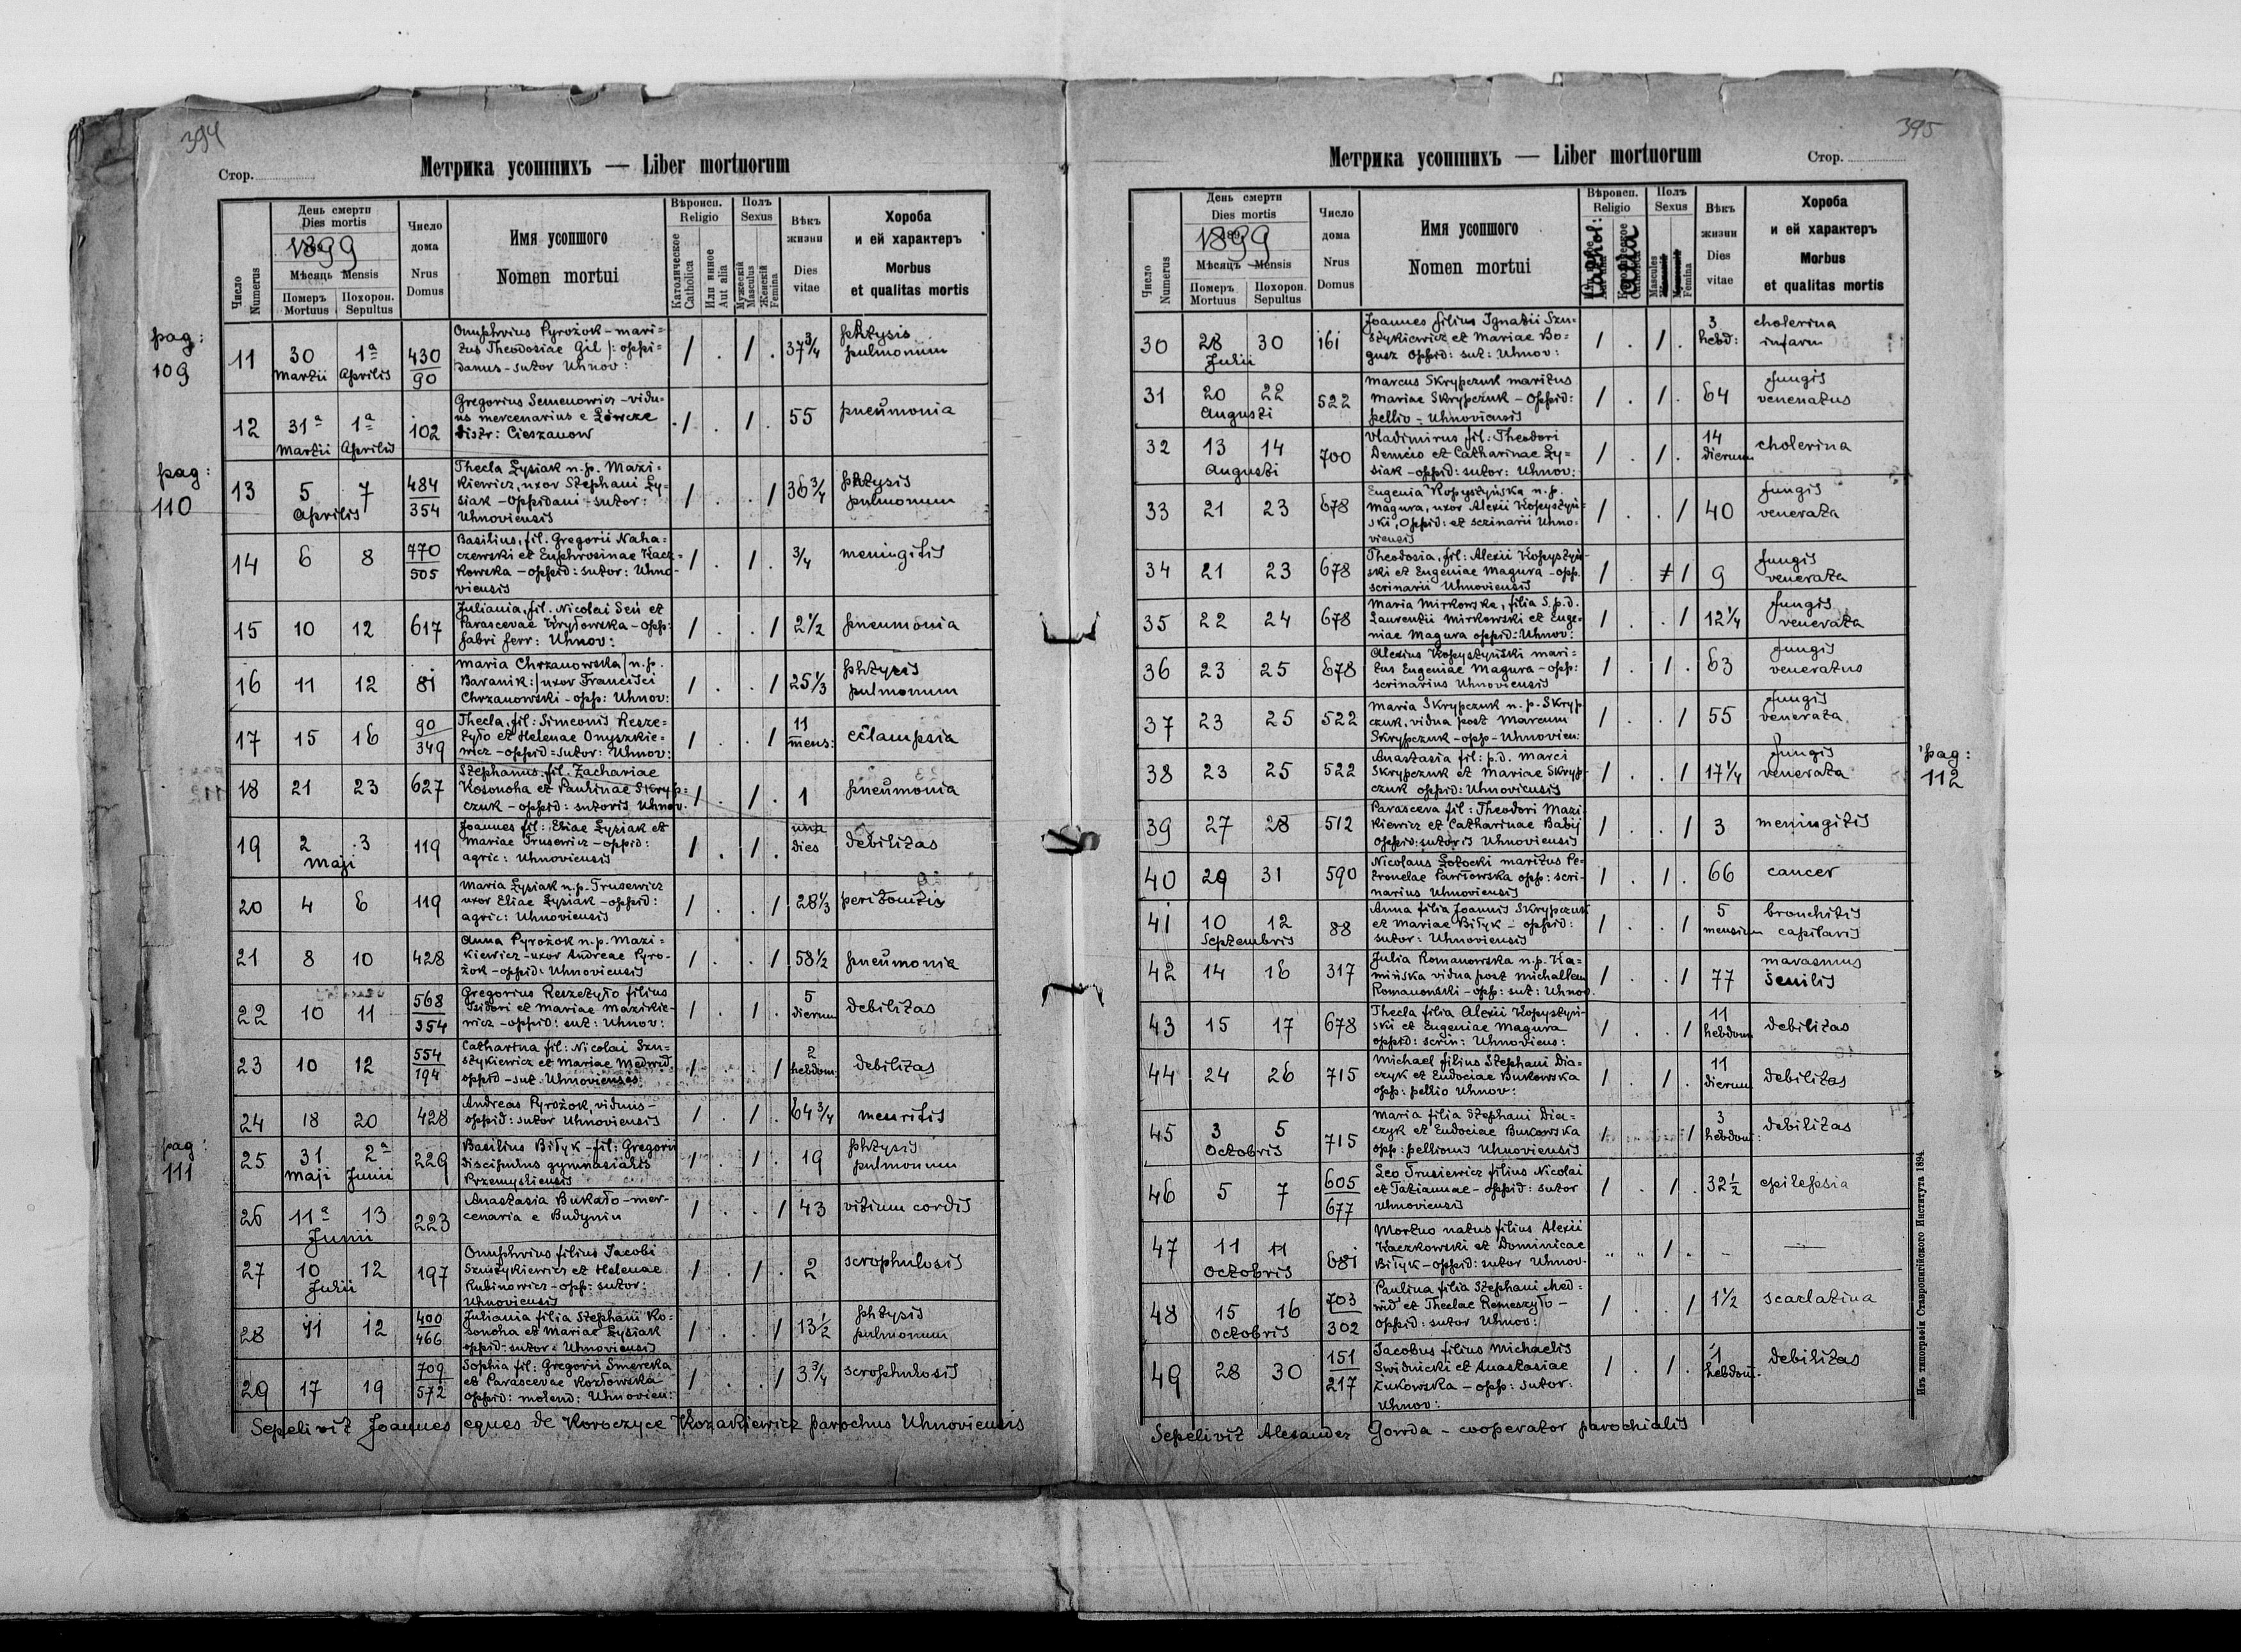 394
Стор.
Метрика усопшихъ — Liber mortuorum
Число Numerus
День смерти Dies mortis
1899
Мѣсяць Mensis
Померъ Mortuus
Похорон. Sepultus
Число дома Nrus Domus
Имя усопшого Nomen mortui
Вѣроисп. Religio
Католическое Catholica
Или инное Aut alia
Полъ Sexus
Мужескій Masculus
Женскій Femina
Вѣкъ жизни Dies vitae
Хороба и ей характеръ Morbus et qualitas mortis
pag: 109
11 30 Martii 1a Aprilis 430/90
Onuphrius Pyrożok – mari=
tus Theodosiae Gil |: oppi=
danus – sutor Uhnov:
1 . 1 . 37 3/4 phtysis pulmonum
12 31a Martii 1a Aprilis 102
Gregorius Semenowicz – vidu=
us mercenarius e Łówcze
distr: Cieszanow
1 . 1 . 55 pneumonia
pag: 110
13 5 7 Aprilis 484/354
Thecla Łysiak n. p. Mazi=
kiewicz, uxor Stephani Ły=
siak – oppidani sutor:
Uhnoviensis
1 . . 1 36 3/4 phtysis pulmonum
14 6 8 770/505
Basilius, fil. Gregorii Naha=
czewski et Euphrosinae Kacz=
kowska – oppid: sutor: Uhno-
viensis
1 . 1 . 3/4 meningitis
15 10 12 617
Juliania, fil. Nicolai Seń et
Parascevae Kryłowska – opp:
fabri ferr: Uhnov:
1 . . 1 2 1/2 pneumonia
16 11 12 81
Maria Chrzanowska | n. p.
Baranik :| uxor Francisci
Chrzanowski – opp: Uhnov:
1 . . 1 25 1/3 phtysis pulmonum
17 15 16 90/349
Thecla, fil: Simeonis Resze=
tyło et Helenae Onyszkie=
wicz – oppid = sutor: Uhnov:
1 . . 1 11 mens: eclampsia
18 21 23 627
Stephanus, fil. Zachariae
Kosonoha et Paulinae Skryp=
czuk – oppid: sutoris Uhnov.
1 . 1 . 1 pneumonia
19 2 3 Maji 119
Joannes fil: Eliae Łysiak et
Mariae Trusewicz – oppid:
agric: Uhnoviensis
1 . 1 . una dies debilitas
20 4 6 119
Maria Łysiak n. p. Trusewicz
uxor Eliae Łysiak – oppid:
agric: Uhnoviensis
1 . . 1 28 1/3 peritonitis
21 8 10 428
Anna Pyrożok n. p. Mazi=
kiewicz – uxor Andreae Pyro-
żok – oppid: Uhnoviensis
1 . . 1 58 1/2 pneumonia
22 10 11 568/354
Gregorius Reszetyło filius
Isidori et Mariae Mazikie-
wicz – oppid: sut: Uhnov:
1 . 1 . 5 dierum debilitas
23 10 12 554/194
Catharina fil: Nicolai Szu=
stykiewicz et Mariae Medwid.
oppid – sut. Uhnovienses
1 . . 1 2 hebdom: debilitas
24 18 20 428
Andreas Pyrożok, viduus –
oppid: sutor Uhnoviensis
1 . 1 . 64 3/4
pag: 111
25 31 Maji 2a Junii 229
Basilius Biłyk – fil: Gregorii
discipulus gymnasialis
Przemysliensis
1 . 1 . 19 phtysis pulmonum
26 11a 13 Junii 223
Anastasia Bukało – mer-
cenaria e Budynin
1 . . 1 43 vitium cordis
27 10 12 Julii 197
Onuphrius filius Jacobi
Szustykiewicz et Helenae
Rubinowicz – opp: sutor:
Uhnoviensis
1 . 1 . 2 scrophulosis
28 11 12 400/466
Juliania filia Stephani Ko=
sonoha et Mariae Łysiak
oppid: sutor: Uhnoviensis
1 . . 1 13 1/2 phtysis pulmonum
29 17 19 709/572
Sophia fil: Gregorii Smerecka
et Parascevae Kozłowska
oppid: molend: Uhnovien:
1 . . 1 3 3/4 scrophulosis
Sepelivit Joannes eques de Koroczyce Kozakiewicz parochus Uhnoviensis
395
Метрика усопшихъ — Liber mortuorum
Стор.
Число Numerus
День смерти Dies mortis
1899
Мѣсяцъ Mensis
Померъ Mortuus
Похорон. Sepultus
Число дома Nrus Domus
Имя усопшого Nomen mortui
Вѣроисп. Religio
Cathol:
alia
Полъ Sexus
Masculus
Femina
Вѣкъ жизни Dies vitae
Хороба и ей характеръ Morbus et qualitas mortis
30 28 30 Julii 161
Joannes filius Ignatii Szu=
stykiewicz et Mariae Bo=
gusz oppid: sut: Uhnov:
1 . 1 . 3 hebd: cholerina infam
31 20 22 Augusti 522
Marcus Skrypczuk maritus
Mariae Skrypczuk – oppid:
pellio – Uhnoviensis
1 . 1 . 64 fungis venenatus
32 13 14 Augusti 700
Vladimirus fil: Theodori
Demcio et Catharinae Ły=
siak – oppid: sutor: Uhnov:
1 . 1 . 14 dierum cholerina
33 21 23 678
Eugenia Kopystyńska n. p.
Magura, uxor Alexii Kopystyń=
ski, oppid: et scrinarii Uhno=
viensis
1 . . 1 40 fungis venerata
34 21 23 678
Theodosia, fil: Alexii Kopystyń-
ski et Eugeniae Magura – opp.
scrinarii Uhnoviensis
1 . 1 9 fungis venerata
35 22 24 678
Maria Mirkowska, filia S. p. d.
Laurentii Mirkowski et Euge-
niae Magura oppid: Uhnov:
1 . . 1 12 1/4 fungis venerata
36 23 25 678
Alexius Kopystyński mari=
tus Eugeniae Magura – opp:
scrinarius Uhnoviensis
1 . 1 . 63 fungis veneratus
37 23 25 522
Maria Skrypczuk n. p. Skryp
czuk, vidua post Marcum
Skrypczuk – opp – Uhnovien:
1 . . 1 55 fungis venerata
38 23 25 522
Anastasia fil: p. d. Marci
Skrypczuk et Mariae Skryp=
czuk oppid: Uhnoviensis
1 . . 1 17 1/4 fungis venerata
pag: 112
39 27 28 512
Parasceva fil: Theodori Mazi
kiewicz et Catharinae Babij
oppid: sutoris Uhnoviensis
1 . . 1 3 meningitis
40 29 31 590
Nicolaus Łotocki maritus Pe=
tronelae Pawłowska opp: scri=
narius Uhnoviensis
1 . 1 . 66 cancer
41 10 12 Septembris 88
Anna filia Joannis Skrypczuk
et Mariae Biłyk – oppid:
sutor: Uhnoviensis
1 . . 1 5 mensium bronchitis capilaris
42 14 16 317
Julia Romanowska n. p. Ka=
mińska vidua post Michaelem
Romanowski – opp: sut: Uhnov.
1 . . 1 77 marasmus senilis
43 15 17 678
Thecla filia Alexii Kopystyń-
ski et Eugeniae Magura
oppid: scrin: Uhnoviens:
1 . . 1 11 hebdom debilitas
44 24 26 715
Michael filius Stephani Dia=
czyk et Eudociae Bukowska
opp: pellio Uhnov:
1 . 1 . 11 dierum debilitas
45 3 5 Octobris 715
Maria filia Stephani Dia=
czyk et Eudociae Bukowska
opp: pellionis Uhnoviensis
1 1 3 hebdom: debilitas
46 5 7 605/677
Leo Trusiewicz filius Nicolai
et Tatiannae – oppid: sutor
Uhnoviensis
1 . 1 . 32 1/2 epilepsia
47 11 11 Octobris 681
Mortuo natus filius Alexii
Kaczkowski et Dominicae
Biłyk – oppid: sutor Uhnov.
„ „ 1 . – —
48 15 16 Octobris 703/302
Paulina filia Stephani Med=
wid et Theclae Remeszyło –
oppid: sutor Uhnov:
1 . . 1 1 1/2 scarlatina
49 28 30 151/217
Jacobus filius Michaelis
Świdnicki et Anastasiae
Żukowska – opp: sutor:
Uhnov:
1 . 1 . 1 hebdom. debilitas
Sepelivit Alexander Gowda – cooperator parochialis
Изъ типографіи Ставропигійского Института 1894.